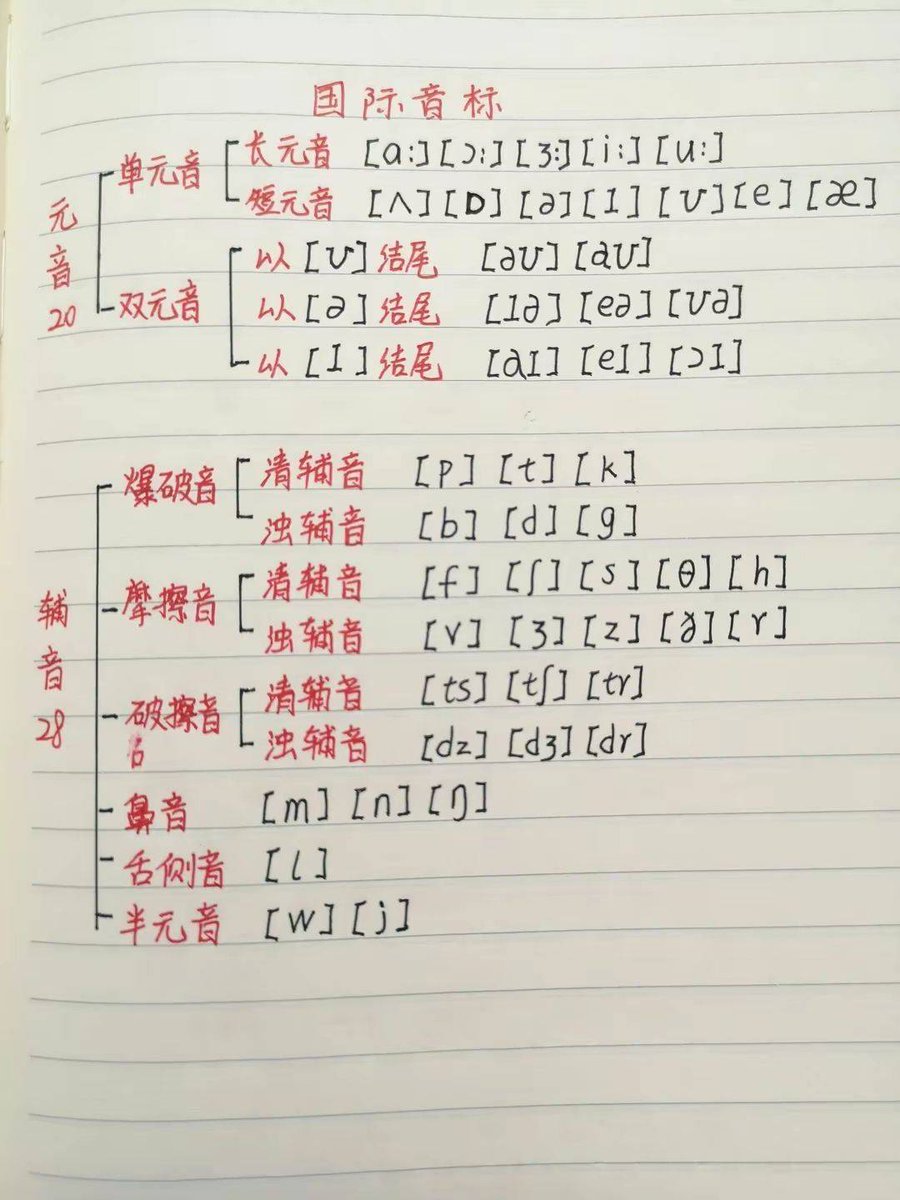 国际音标
元音20
单元音
长元音 [ɑ:] [ɔ:] [ɜ:] [i:] [u:]
短元音 [ʌ] [ɒ] [ə] [ɪ] [ʊ] [e] [æ]
双元音
以[ʊ]结尾 [əʊ] [aʊ]
以[ə]结尾 [ɪə] [eə] [ʊə]
以[ɪ]结尾 [aɪ] [eɪ] [ɔɪ]
辅音28
爆破音
清辅音 [p] [t] [k]
浊辅音 [b] [d] [g]
摩擦音
清辅音 [f] [ʃ] [s] [θ] [h]
浊辅音 [v] [ʒ] [z] [ð] [r]
破擦音
6
清辅音 [ts] [tʃ] [tr]
浊辅音 [dz] [dʒ] [dr]
鼻音 [m] [n] [ŋ]
舌侧音 [l]
半元音 [w] [j]